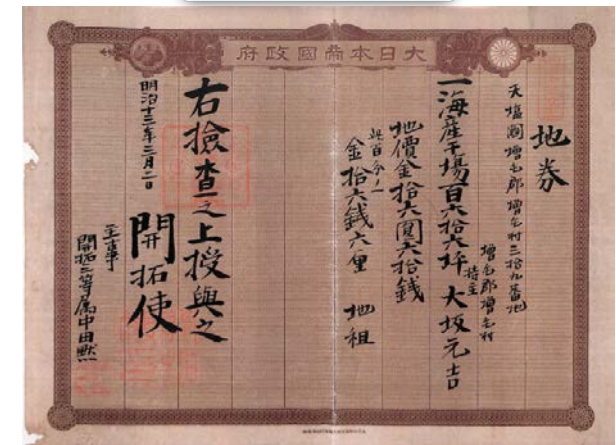 大日本帝國政府
地券
天塩國増毛郡増毛村三拾九番地
増毛郡増毛村
一海産干場百六拾六坪 持主 大坂元吉
地價金拾六圓六拾錢
此百分ノ一
金拾六錢六厘 地租
右撿査之上授與之
明治十三年二月二日
開拓使
主事
開拓二等属中田黙